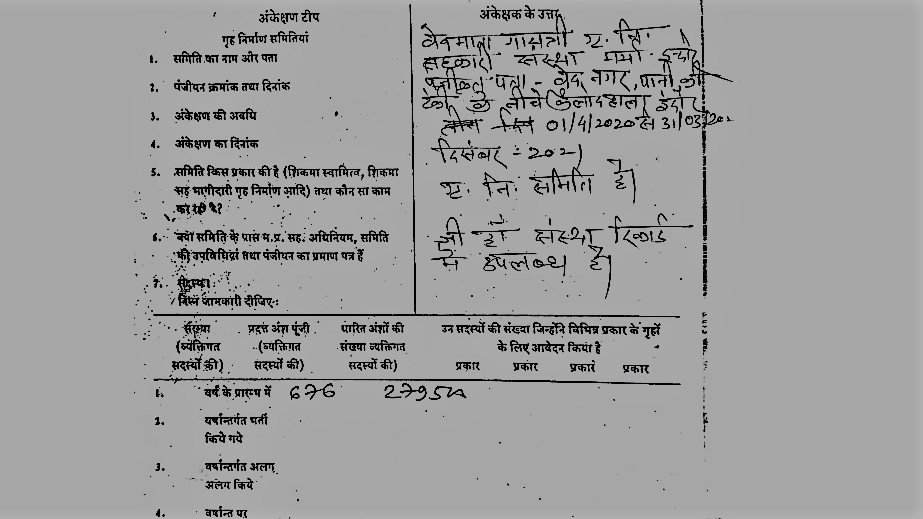 अंकेक्षण टीप
अंकेक्षक के उत्तर
गृह निर्माण समितियां
1. समिति का नाम और पता
वेदमाता गायत्री गृ. नि.
सहकारी संस्था मर्या इन्दौर
पंजीकृत पता - वेद नगर, पानी की
टंकी के नीचे इंदौर
2. पंजीयन क्रमांक तथा दिनांक
3. अंकेक्षण की अवधि
01/4/2020 से 31/03/202
4. अंकेक्षण का दिनांक
दिसंबर - 2021
5. समिति किस प्रकार की है (शिकमा स्वामित्व, शिकमा
सह भागीदारी गृह निर्माण आदि) तथा कौन सा काम
कर रही है?
गृ. नि. समिति है।
6. क्या समिति के पास म.प्र. सह. अधिनियम, समिति
की उपविधियां तथा पंजीयन का प्रमाण पत्र हैं
जी हाँ संस्था रिकार्ड
में उपलब्ध है।
7. सदस्यः
निम्न जानकारी दीजिए:-
संख्या (व्यक्तिगत सदस्यों की)
प्रदत्त अंश पूंजी (व्यक्तिगत सदस्यों की)
धारित अंशों की संख्या व्यक्तिगत सदस्यों की)
उन सदस्यों की संख्या जिन्होंने विभिन्न प्रकार के गृहों
के लिए आवेदन किया है
प्रकार प्रकार प्रकार प्रकार
1. वर्ष के प्रारम्भ में 676
2. वर्षान्तर्गत भर्ती
किये गये
3. वर्षान्तर्गत अलग
अलग किये
4. वर्षान्त पर